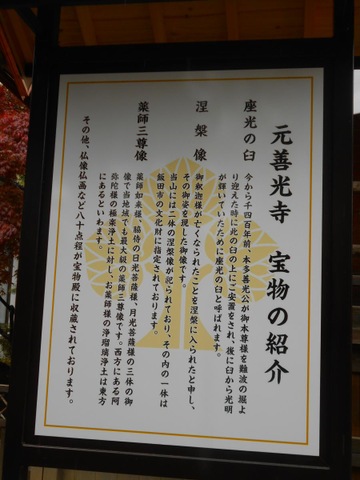 元善光寺 宝物の紹介
座光の臼
今から千四百年前、本多善光公が御本尊様を難波の堀よ
り迎えた時に此の臼の上にご安置をされ、後に臼から光明
が輝いていたために座光の臼と呼ばれます。
涅槃像
御釈迦様が亡くなられたことを涅槃に入られたと申し、
その御姿を現した御像です。
当山には二体の涅槃像が祀られており、その内の一体は
飯田市の文化財に指定されております。
薬師三尊像
薬師如来様、脇侍の日光菩薩様、月光菩薩様の三体の御
像で当地域でも最大級の薬師三尊像です。西方にある阿
弥陀様の極楽浄土に対し、お薬師様の浄瑠璃浄土は東方
にあるといわます。
その他、仏像仏画など八十点程が宝物殿に収蔵されております。